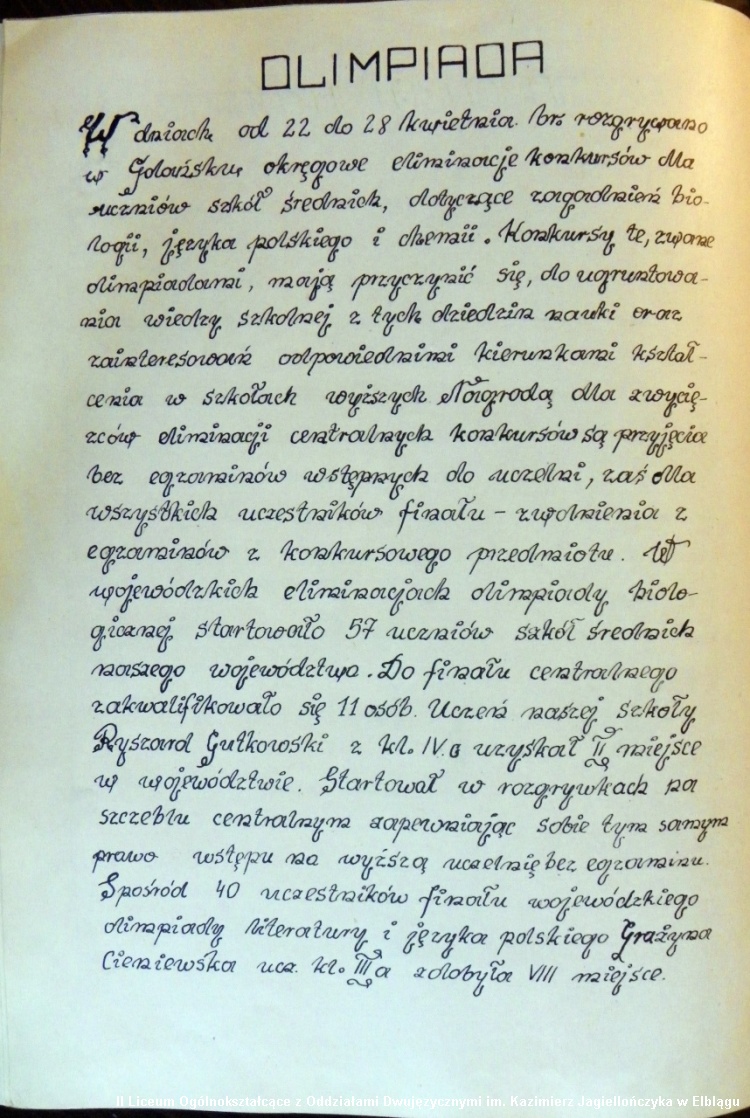 OLIMPIADA
W dniach od 22 do 28 kwietnia br. rozgrywano
w Gdańsku okręgowe eliminacje konkursów dla
uczniów szkół średnich, dotyczące zagadnień bio-
logii, języka polskiego i chemii. Konkursy te, zwane
olimpiadami, mają przyczynić się, do ugruntowa-
nia wiedzy szkolnej z tych dziedzin nauki oraz
zainteresowań odpowiednimi kierunkami kształ-
cenia w szkołach wyższych Nagrodą dla zwycię-
zców eliminacji centralnych konkursów są przyjęcia
bez egzaminów wstępnych do uczelni, zaś dla
wszystkich uczestników finału - zwolnienia z
egzaminów z konkursowego przedmiotu. W
wojewódzkich eliminacjach olimpiady biolo-
gicznej startowało 57 uczniów szkół średnich
naszego województwa. Do finału centralnego
zakwalifikowało się 11 osób. Uczeń naszej szkoły
Ryszard Gutkowski z kl. IV. G uzyskał II miejsce
w województwie. Startował w rozgrywkach na
szczeblu centralnym zapewniając sobie tym samym
prawo wstępu na wyższą uczelnię bez egzaminu.
Spośród 40 uczestników finału wojewódzkiego
olimpiady literatury i języka polskiego Grażyna
Cieniewska ucz. kl. III a zdobyła VIII miejsce.
II Liceum Ogólnokształcące z Oddziałami Dwujęzycznymi im. Kazimierz Jagiellończyka w Elblągu